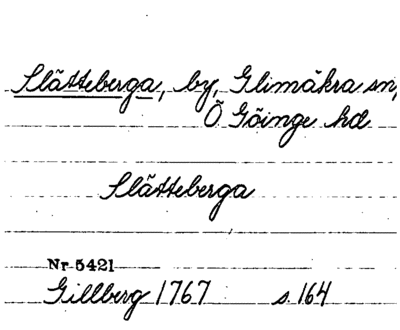 Slätteberga, by, Glimåkra sn,
Ö Göinge hd
Slätteberga
Nr 5421
Gillberg 1767 s 164